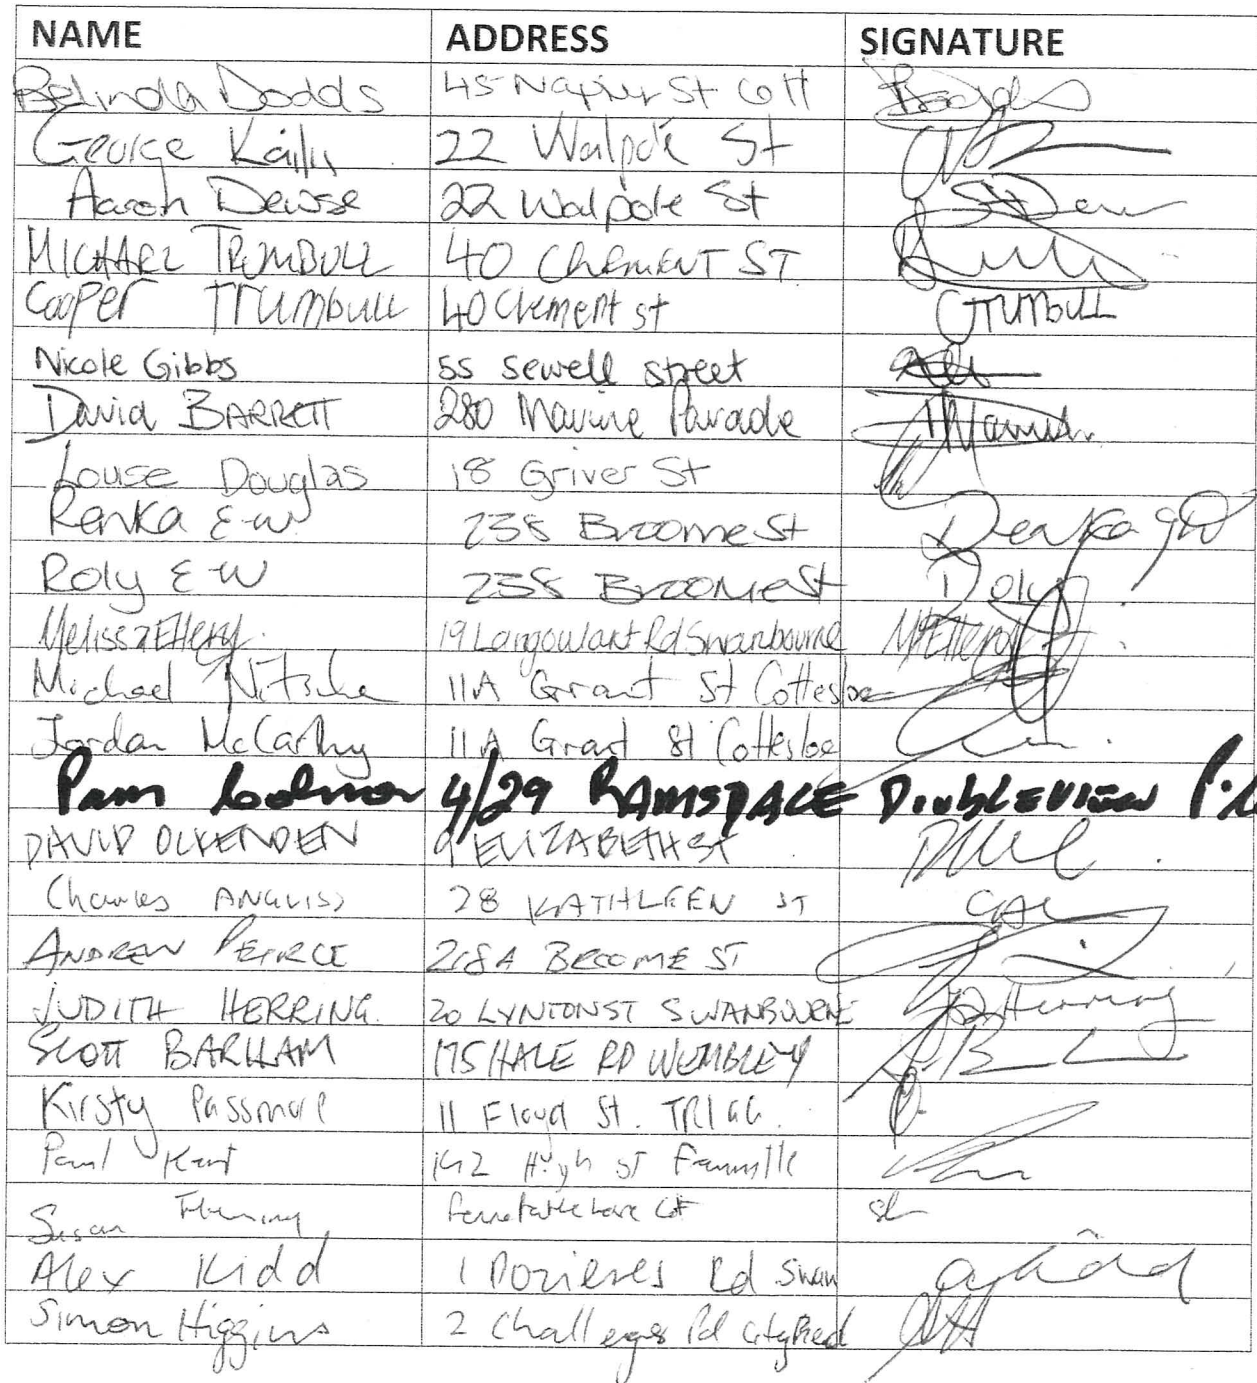 NAME ADDRESS SIGNATURE
Belinda Dodds 45 Napier St Cott
George 22 Walpole St
Aaron Dewse 22 Walpole St
MICHAEL TRUMBULL 40 CLEMENT ST
Cooper TRUMBULL 40 Clement st CTRUMBULL
Nicole Gibbs 55 sewell street
David BARRETT 280 Marine Parade
Louise Douglas 18 Griver St
Renka E-W 238 Broome St
Roly E-W 238 BROOME St Roly
Melissa Ellery 19 Langoulant Rd Swanbourne
Michael Nitsche 11A Grant St Cottesloe
Jordan McCarthy 11A Grant St Cottesloe
Pam 4/29 DOUBLEVIEW
DAVID 9 ELIZABETH ST
Charles ANGLISS 28 KATHLEEN ST
ANDREW PEIRCE 218A BROOME ST
JUDITH HERRING. 20 LYNTON ST SWANBOURNE Herring
SCOTT BARHAM 175 HALE RD WEMBLEY
Kirsty Passmore 11 Floyd St. TRIGG.
Paul Kent High St
Susan Fleming
Alex Kidd 1 Pozieres Rd Swan akidd
Simon Higgins 2